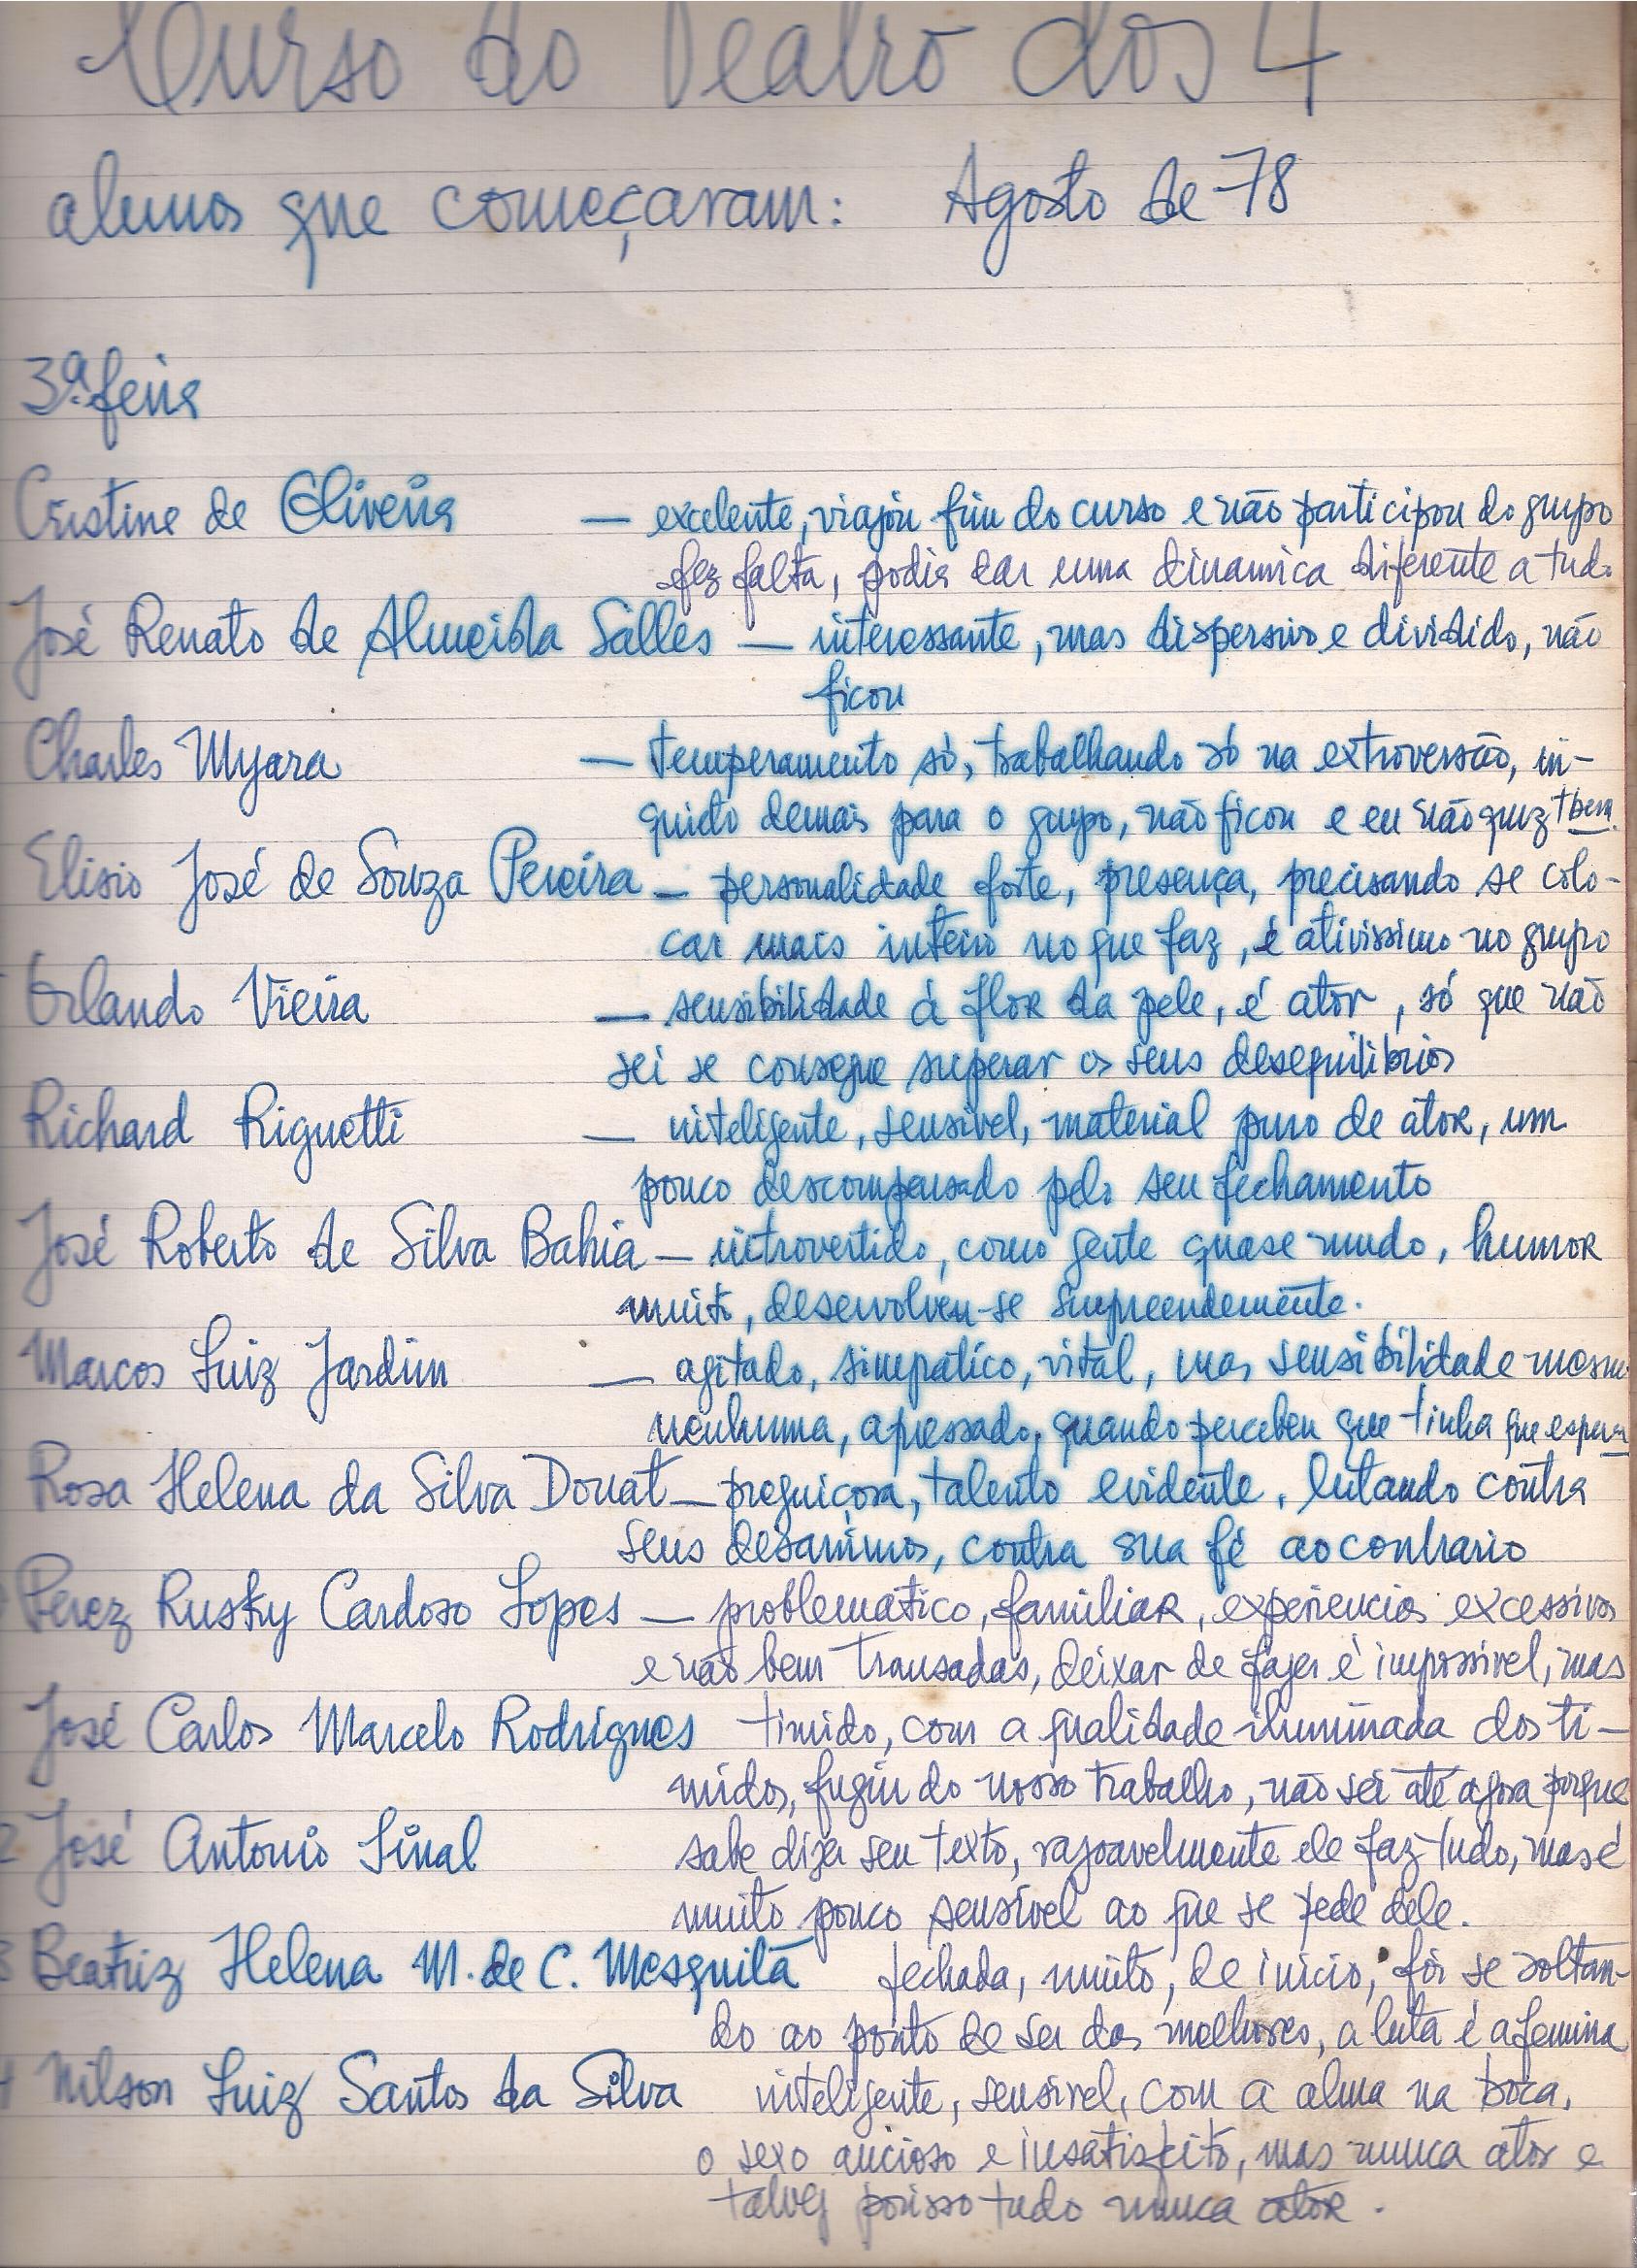 Curso do Teatro dos 4
alunos que começaram: Agosto de 78
3ª feira
Cristine de Oliveira — excelente, viajou fim do curso e não participou do grupo
fez falta, podia dar uma dinamica diferente a tudo
José Renato de Almeida Salles — interessante, mas dispersivo e dividido, não
ficou
Charles Myara — temperamento só, trabalhando só na extroversão, in-
quieto demais para o grupo, não ficou e eu não quiz tbem.
Elisio José de Souza Pereira — personalidade forte, presença, precisando se colo-
car mais inteiro no que faz, é ativissimo no grupo
Orlando Vieira — sensibilidade à flor da pele, é ator, só que não
sei se consegue superar os seus desequilibrios
Richard Riguetti — inteligente, sensivel, material puro de ator, um
pouco descompensado pelo seu fechamento
José Roberto de Silva Bahia — introvertido, como gente quase mudo, humor
muito, desenvolveu-se surpreendemente.
Marcos Luiz Jardim — agitado, simpatico, vital, mas sensibilidade mesmo
nenhuma, apressado, quando percebeu que tinha que esperar
Rosa Helena da Silva Douat — preguiçosa, talento evidente, lutando contra
seus desanimos, contra sua fé ao contrario
Perez Rusky Cardoso Lopes — problematico, familiar, experiencias excessivas
e não bem transadas, deixar de fazer é impossivel, mas
José Carlos Marcelo Rodrigues timido, com a qualidade iluminada dos ti-
midos, fugiu do nosso trabalho, não sei até agora porque
2 José Antonio Sinal sabe dizer seu texto, razoavelmente ele faz tudo, mas é
muito pouco sensivel ao que se pede dele.
3 Beatriz Helena M. de C. Mesquita fechada, muito, de inicio, foi se soltan-
do ao ponto de ser das melhores, a luta é a femina
4 Nilson Luiz Santos da Silva inteligente, sensivel, com a alma na boca,
o sexo ancioso e insatisfeito, mas nunca ator e
talvez porisso tudo nunca ator.